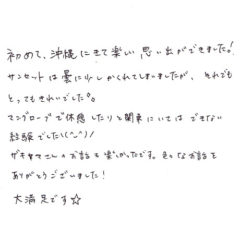 初めて、沖縄にきて楽しい思い出ができました!
サンセットは雲に少しかくれてしまいましたが、それでも
とってもきれいでした。
マングローブで休憩したりと関東にいてはできない
経験でした\(^^)/
ザキヤマさんのお話も楽しかったです。色々なお話を
ありがとうございました!
大満足です☆